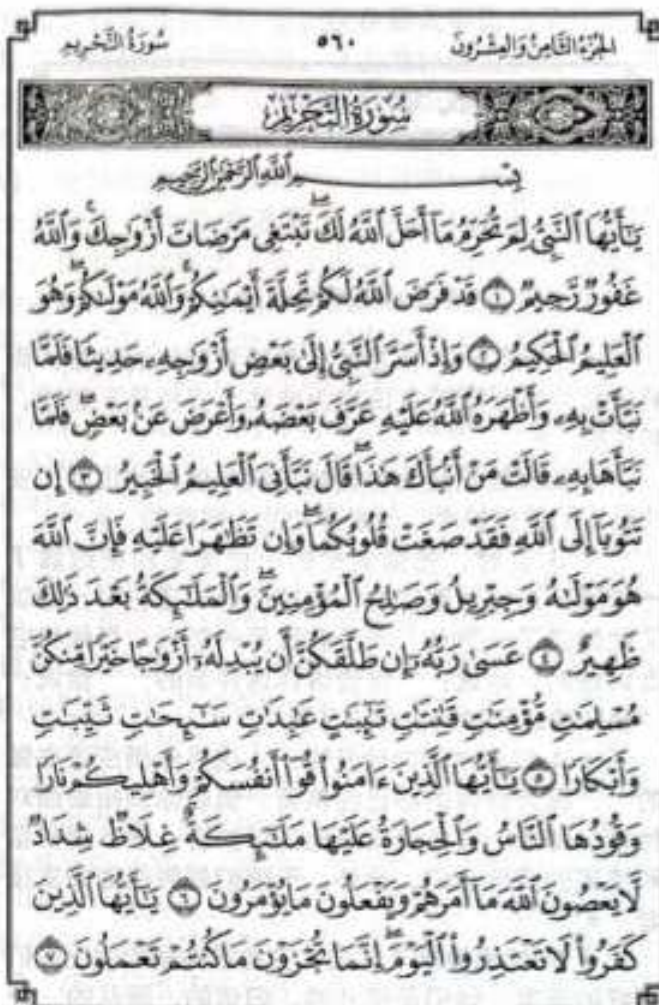 الجزء الثامن والعشرون ٥٦٠ سورة التحريم
سُورَةُ التَّحْرِيمِ
بِسْمِ ٱللَّهِ ٱلرَّحْمَٰنِ ٱلرَّحِيمِ
يَٰٓأَيُّهَا ٱلنَّبِىُّ لِمَ تُحَرِّمُ مَآ أَحَلَّ ٱللَّهُ لَكَۖ تَبْتَغِى مَرْضَاتَ أَزْوَٰجِكَۚ وَٱللَّهُ
غَفُورٌ رَّحِيمٌ ١ قَدْ فَرَضَ ٱللَّهُ لَكُمْ تَحِلَّةَ أَيْمَٰنِكُمْۚ وَٱللَّهُ مَوْلَىٰكُمْۖ وَهُوَ
ٱلْعَلِيمُ ٱلْحَكِيمُ ٢ وَإِذْ أَسَرَّ ٱلنَّبِىُّ إِلَىٰ بَعْضِ أَزْوَٰجِهِۦ حَدِيثًا فَلَمَّا
نَبَّأَتْ بِهِۦ وَأَظْهَرَهُ ٱللَّهُ عَلَيْهِ عَرَّفَ بَعْضَهُۥ وَأَعْرَضَ عَنۢ بَعْضٍۖ فَلَمَّا
نَبَّأَهَا بِهِۦ قَالَتْ مَنْ أَنۢبَأَكَ هَٰذَاۖ قَالَ نَبَّأَنِىَ ٱلْعَلِيمُ ٱلْخَبِيرُ ٣ إِن
تَتُوبَآ إِلَى ٱللَّهِ فَقَدْ صَغَتْ قُلُوبُكُمَاۖ وَإِن تَظَٰهَرَا عَلَيْهِ فَإِنَّ ٱللَّهَ
هُوَ مَوْلَىٰهُ وَجِبْرِيلُ وَصَٰلِحُ ٱلْمُؤْمِنِينَۖ وَٱلْمَلَٰٓئِكَةُ بَعْدَ ذَٰلِكَ
ظَهِيرٌ ٤ عَسَىٰ رَبُّهُۥٓ إِن طَلَّقَكُنَّ أَن يُبْدِلَهُۥٓ أَزْوَٰجًا خَيْرًا مِّنكُنَّ
مُسْلِمَٰتٍ مُّؤْمِنَٰتٍ قَٰنِتَٰتٍ تَٰٓئِبَٰتٍ عَٰبِدَٰتٍ سَٰٓئِحَٰتٍ ثَيِّبَٰتٍ
وَأَبْكَارًا ٥ يَٰٓأَيُّهَا ٱلَّذِينَ ءَامَنُوا۟ قُوٓا۟ أَنفُسَكُمْ وَأَهْلِيكُمْ نَارًا
وَقُودُهَا ٱلنَّاسُ وَٱلْحِجَارَةُ عَلَيْهَا مَلَٰٓئِكَةٌ غِلَاظٌ شِدَادٌ
لَّا يَعْصُونَ ٱللَّهَ مَآ أَمَرَهُمْ وَيَفْعَلُونَ مَا يُؤْمَرُونَ ٦ يَٰٓأَيُّهَا ٱلَّذِينَ
كَفَرُوا۟ لَا تَعْتَذِرُوا۟ ٱلْيَوْمَۖ إِنَّمَا تُجْزَوْنَ مَا كُنتُمْ تَعْمَلُونَ ٧